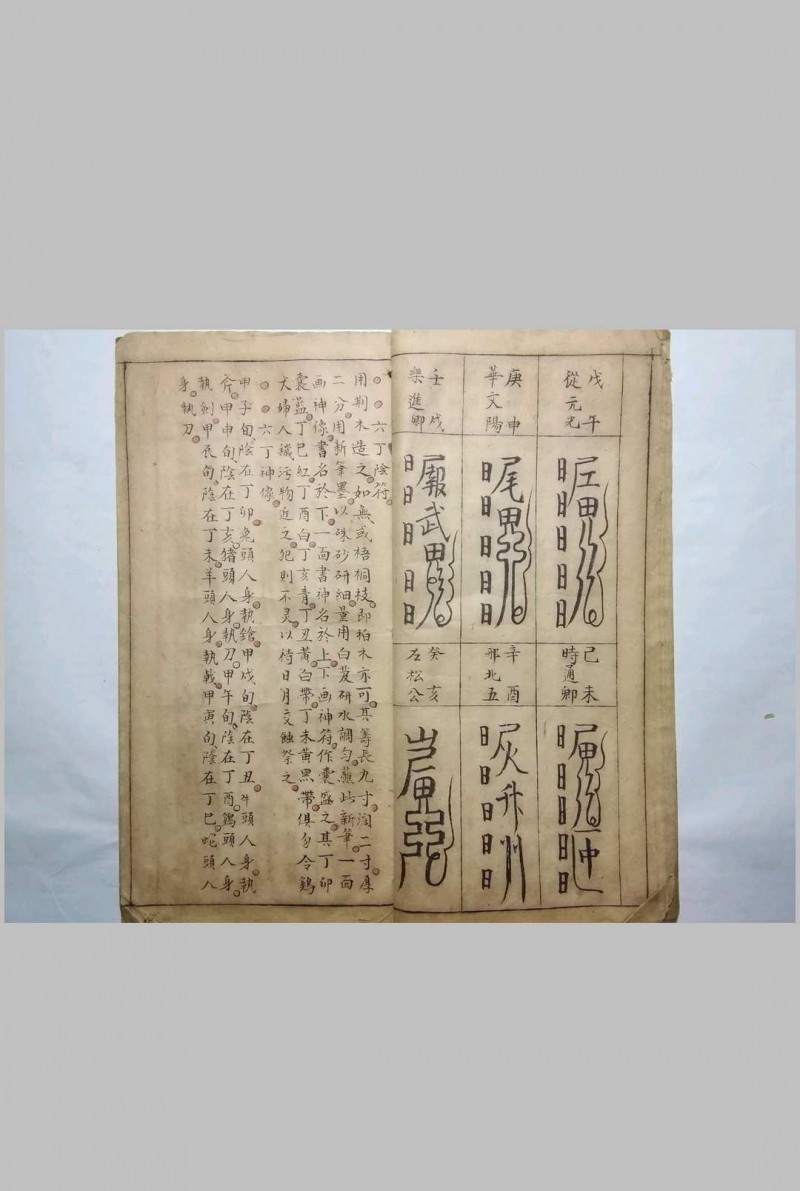 戊午
從元光
己未
時通卿
庚申
華文陽
辛酉
邪北五
壬戌
樂進卿
癸亥
石松公
六丁陰符
用荆木造之如無或梧桐枝即柏木亦可其籌長九寸濶二寸厚
二分用新筆墨以硃砂研細量用白芨研水調勻蘸此新筆一面
画神像書名於下一面書神名於上下画神符作囊盛之其丁卯
囊藍丁巳紅丁酉白丁亥青丁丑黃白帶丁未黃黑帶俱勿令鷄
犬婦人穢污物近之犯則不灵以待日月交蝕祭之
六丁神像
甲子旬陰在丁卯兔頭人身執鎗甲戌旬陰在丁丑牛頭人身執
斧甲申旬陰在丁亥猪頭人身執刀甲午旬陰在丁酉鷄頭人身
執劍甲辰旬陰在丁未羊頭人身執戟甲寅旬陰在丁巳蛇頭人
身執刀